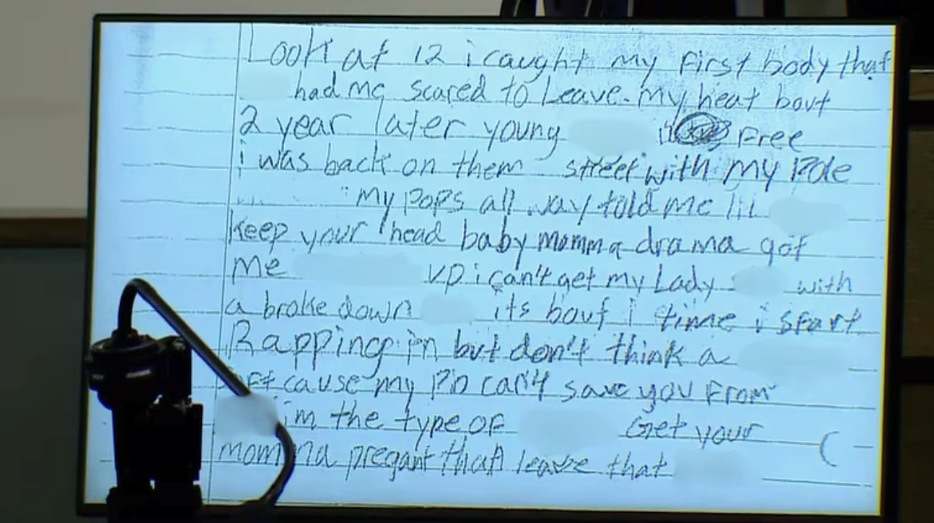 Look at 12 i caught my first body that
had me scared to leave. my heat bout
2 year later young Free
i was back on them street with my Pole
my pops all way told me lil
keep your head baby momma drama got
me up i can't get my Lady with
a broke down its bout time i start
Rapping in but don't think a
cause my Po can't save you From
im the type of Get your
momma pregant than leave that